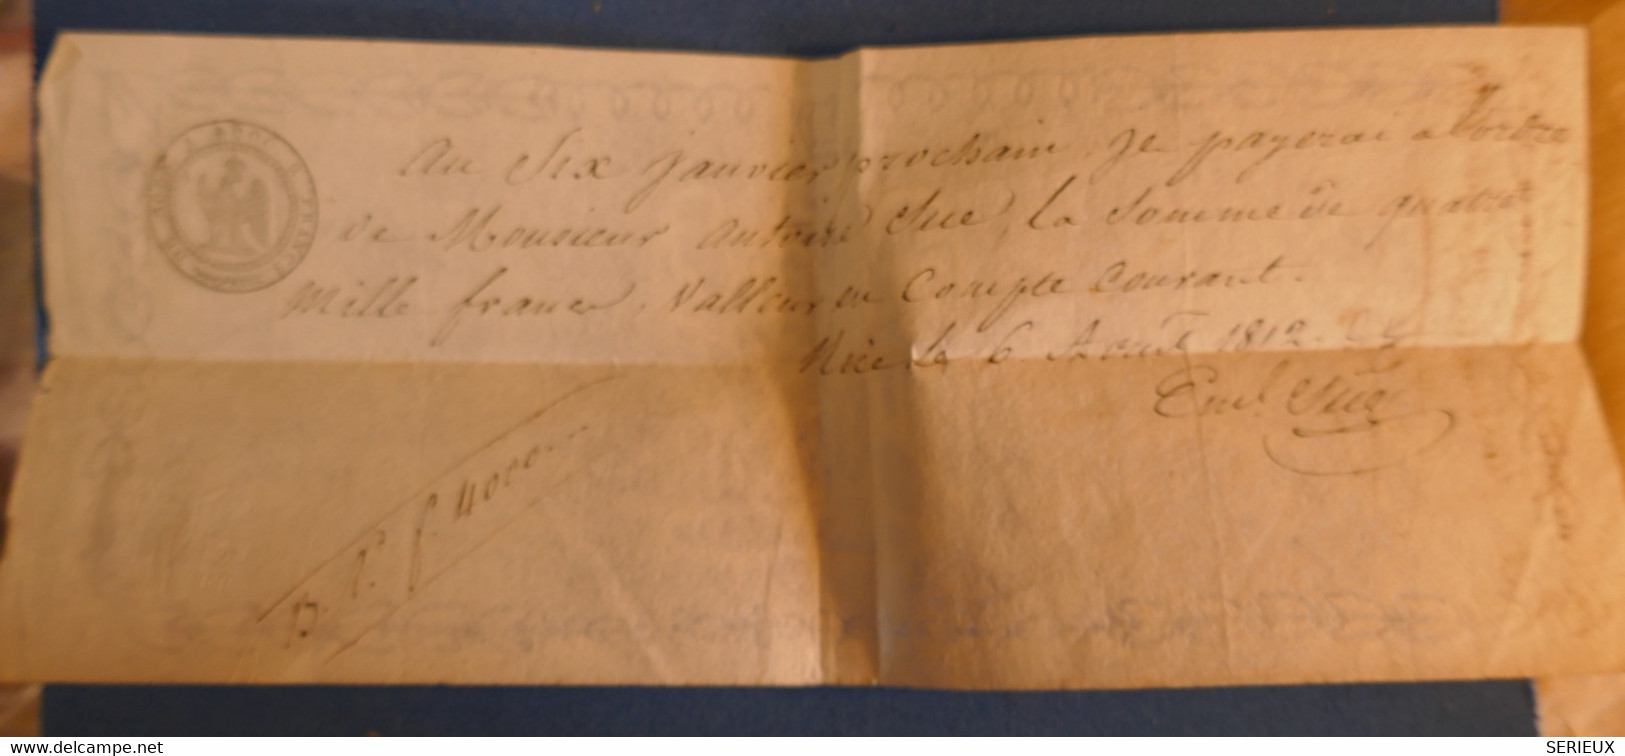 Au Six janvier prochain, Je payerai a l'ordre
de Monsieur Antoine Sue, la Somme de quatre
Mille francs, Valleur en Compte Courant.
Nice le 6 Aout 1812.
Eml. Sue
B. P. f. 4000...
www.delcampe.net
SERIEUX